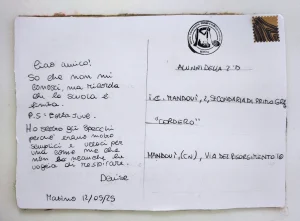 Ciao amico!
So che non mi
conosci, ma ricorda
che la scuola è
finita.
P.S: Bella Juve.
Ho scelto gli specchi
perché erano
semplici e veloci per
una come me che
non ha neanche la
voglia di respirare.
Denise
Matino 12/05/25
ALUNNI DELLA 2°D
I.C. MONDOVÌ, 2, SECONDARIA DI PRIMO GR
"CORDERO"
MONDOVÌ, (CN), VIA DEL RISORGIMENTO 10